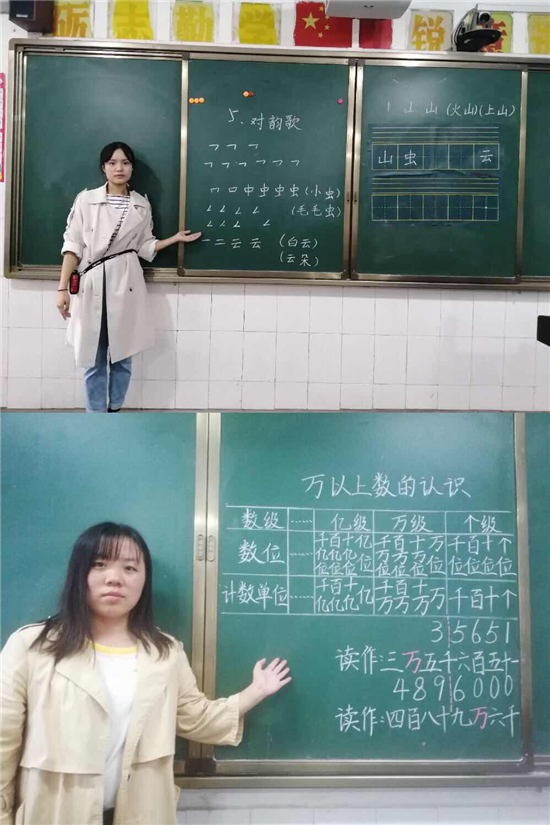 志勤学
锐
5、对韵歌
㇕ ㇕ ㇕ ㇕
㇕ ㇕ ㇕ ㇕ ㇕ ㇕
㇕ 口 中 虫 虫 虫 (小虫)
ㄥ ㄥ ㄥ ㄥ (毛毛虫)
ㄥ ㄥ ㄥ ㄥ
一 二 云 云 (白云)
(云朵)
丨 山 山 (火山)(上山)
山 虫 云
万以上数的认识
数级 …… 亿级 万级 个级
数位 …… 千亿位 百亿位 十亿位 亿位 千万位 百万位 十万位 万位 千位 百位 十位 个位
计数单位 …… 千亿 百亿 十亿 亿 千万 百万 十万 万 千 百 十 个
35651
读作:三万五千六百五十一
4896000
读作:四百八十九万六千